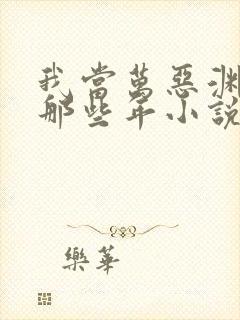 我當萬惡淵
那些年小說
樂華